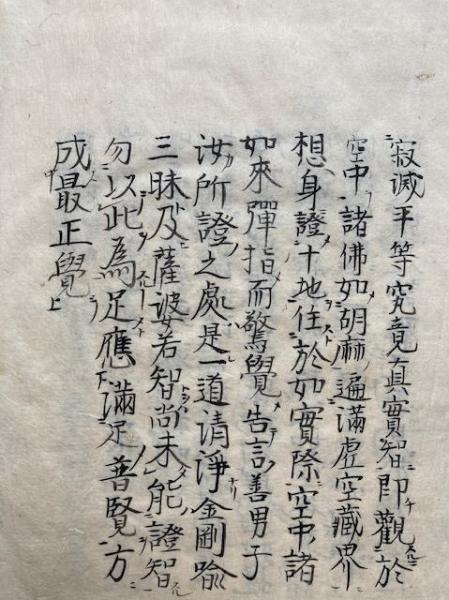 寂滅平等究竟真實智即觀於
空中諸佛如胡麻遍滿虛空藏界
想身證十地住於如實際空中諸
如來彈指而驚覺告言善男子
汝所證之處是一道清淨金剛喩
三昧及薩婆若智尚未能證智
勿以此為足應滿足普賢方
成最正覺